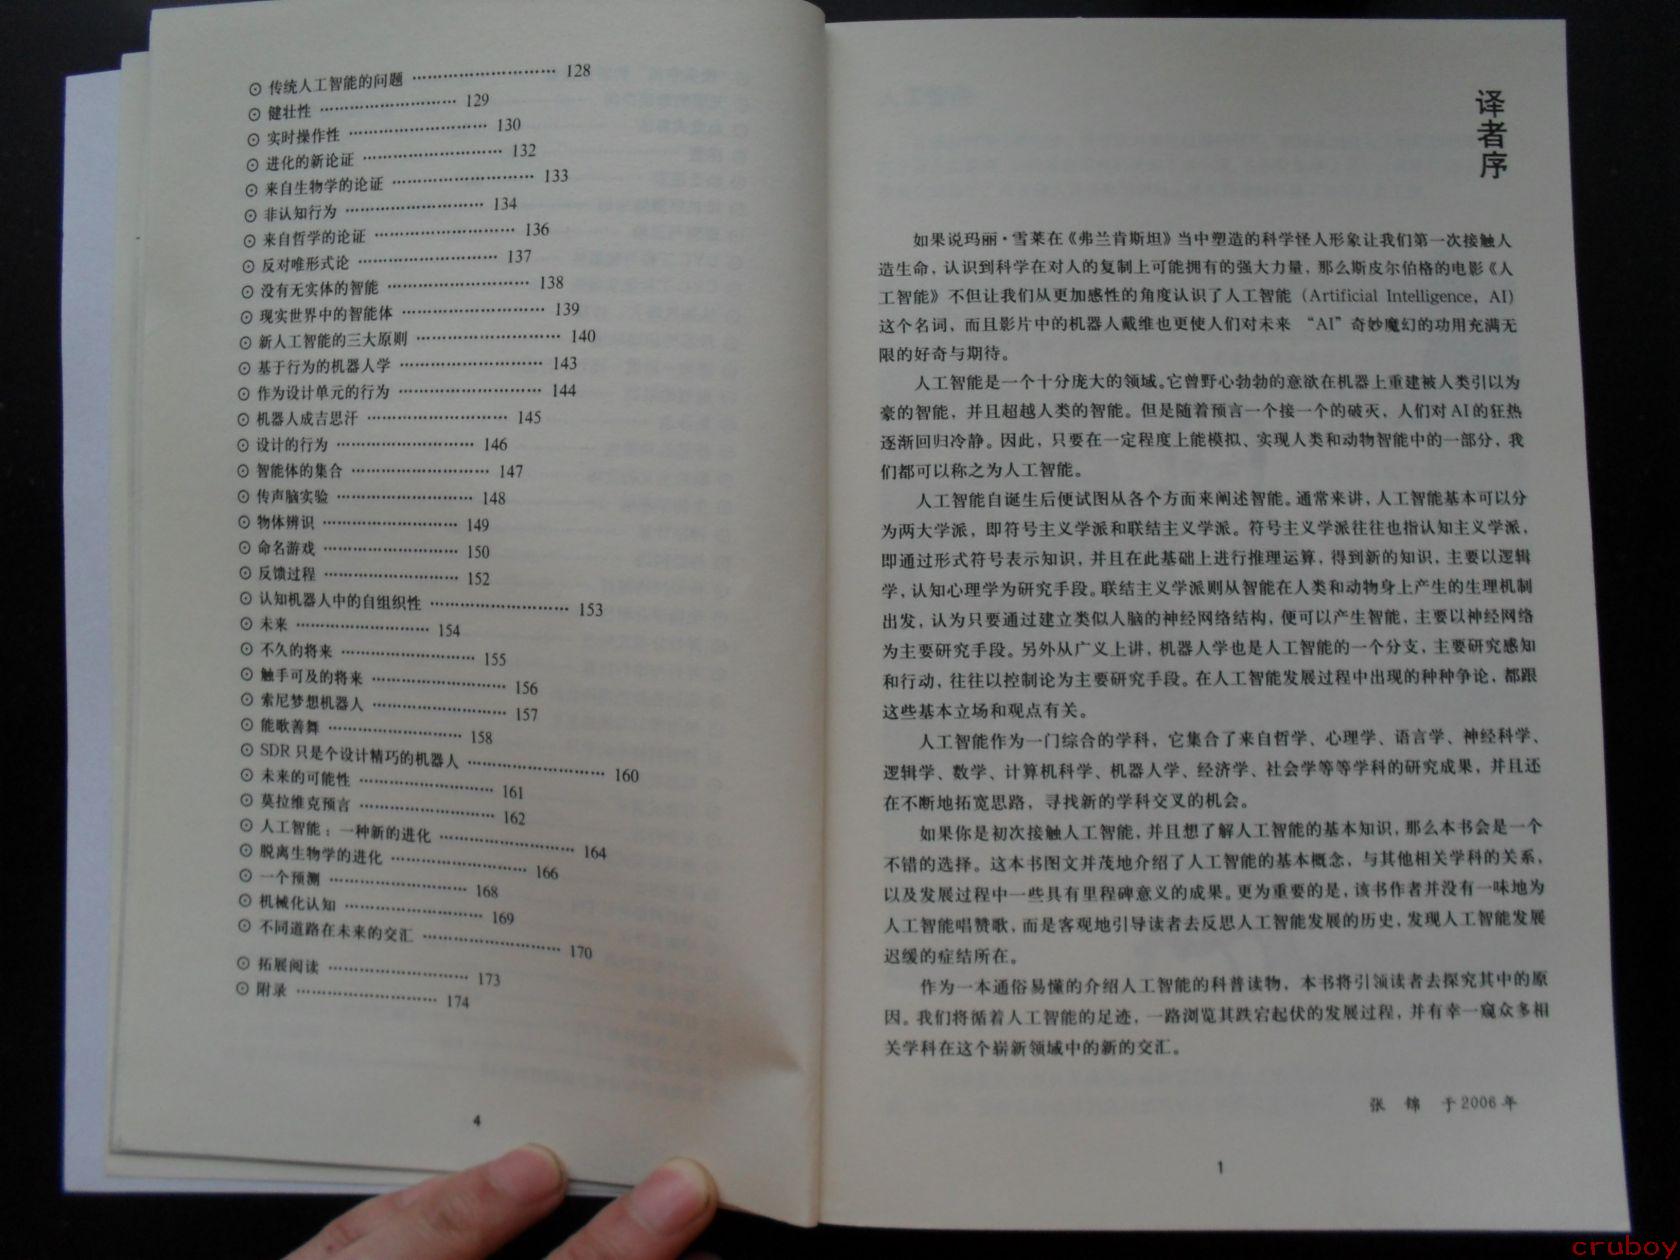 ⊙ 传统人工智能的问题 ………………… 128
⊙ 健壮性 ………………… 129
⊙ 实时操作性 ………………… 130
⊙ 进化的新论证 ………………… 132
⊙ 来自生物学的论证 ………………… 133
⊙ 非认知行为 ………………… 134
⊙ 来自哲学的论证 ………………… 136
⊙ 反对唯形式论 ………………… 137
⊙ 没有无实体的智能 ………………… 138
⊙ 现实世界中的智能体 ………………… 139
⊙ 新人工智能的三大原则 ………………… 140
⊙ 基于行为的机器人学 ………………… 143
⊙ 作为设计单元的行为 ………………… 144
⊙ 机器人成吉思汗 ………………… 145
⊙ 设计的行为 ………………… 146
⊙ 智能体的集合 ………………… 147
⊙ 传声脑实验 ………………… 148
⊙ 物体辨识 ………………… 149
⊙ 命名游戏 ………………… 150
⊙ 反馈过程 ………………… 152
⊙ 认知机器人中的自组织性 ………………… 153
⊙ 未来 ………………… 154
⊙ 不久的将来 ………………… 155
⊙ 触手可及的将来 ………………… 156
⊙ 索尼梦想机器人 ………………… 157
⊙ 能歌善舞 ………………… 158
⊙ SDR 只是个设计精巧的机器人 ………………… 160
⊙ 未来的可能性 ………………… 161
⊙ 莫拉维克预言 ………………… 162
⊙ 人工智能：一种新的进化 ………………… 164
⊙ 脱离生物学的进化 ………………… 166
⊙ 一个预测 ………………… 168
⊙ 机械化认知 ………………… 169
⊙ 不同道路在未来的交汇 ………………… 170
⊙ 拓展阅读 ………………… 173
⊙ 附录 ………………… 174
4
译者序
如果说玛丽·雪莱在《弗兰肯斯坦》当中塑造的科学怪人形象让我们第一次接触人
造生命，认识到科学在对人的复制上可能拥有的强大力量，那么斯皮尔伯格的电影《人
工智能》不但让我们从更加感性的角度认识了人工智能（Artificial Intelligence，AI）
这个名词，而且影片中的机器人戴维也更使人们对未来 “AI”奇妙魔幻的功用充满无
限的好奇与期待。
人工智能是一个十分庞大的领域。它曾野心勃勃的意欲在机器上重建被人类引以为
豪的智能，并且超越人类的智能。但是随着预言一个接一个的破灭，人们对AI的狂热
逐渐回归冷静。因此，只要在一定程度上能模拟、实现人类和动物智能中的一部分，我
们都可以称之为人工智能。
人工智能自诞生后便试图从各个方面来阐述智能。通常来讲，人工智能基本可以分
为两大学派，即符号主义学派和联结主义学派。符号主义学派往往也指认知主义学派，
即通过形式符号表示知识，并且在此基础上进行推理运算，得到新的知识，主要以逻辑
学，认知心理学为研究手段。联结主义学派则从智能在人类和动物身上产生的生理机制
出发，认为只要通过建立类似人脑的神经网络结构，便可以产生智能，主要以神经网络
为主要研究手段。另外从广义上讲，机器人学也是人工智能的一个分支，主要研究感知
和行动，往往以控制论为主要研究手段。在人工智能发展过程中出现的种种争论，都跟
这些基本立场和观点有关。
人工智能作为一门综合的学科，它集合了来自哲学、心理学、语言学、神经科学、
逻辑学、数学、计算机科学、机器人学、经济学、社会学等等学科的研究成果，并且还
在不断地拓宽思路，寻找新的学科交叉的机会。
如果你是初次接触人工智能，并且想了解人工智能的基本知识，那么本书会是一个
不错的选择。这本书图文并茂地介绍了人工智能的基本概念，与其他相关学科的关系，
以及发展过程中一些具有里程碑意义的成果。更为重要的是，该书作者并没有一味地为
人工智能唱赞歌，而是客观地引导读者去反思人工智能发展的历史，发现人工智能发展
迟缓的症结所在。
作为一本通俗易懂的介绍人工智能的科普读物，本书将引领读者去探究其中的原
因。我们将循着人工智能的足迹，一路浏览其跌宕起伏的发展过程，并有幸一窥众多相
关学科在这个崭新领域中的新的交汇。
张 锦 于2006年
1
cruboy